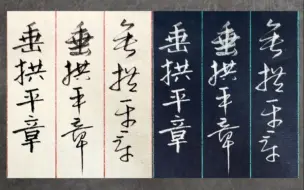 垂拱平章
垂拱平章
垂拱平章
垂拱平章
垂拱平章
垂拱平章